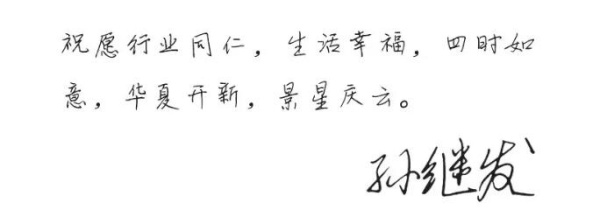 祝愿行业同仁，生活幸福，四时如
意，华夏开新，景星庆云。
孙继发